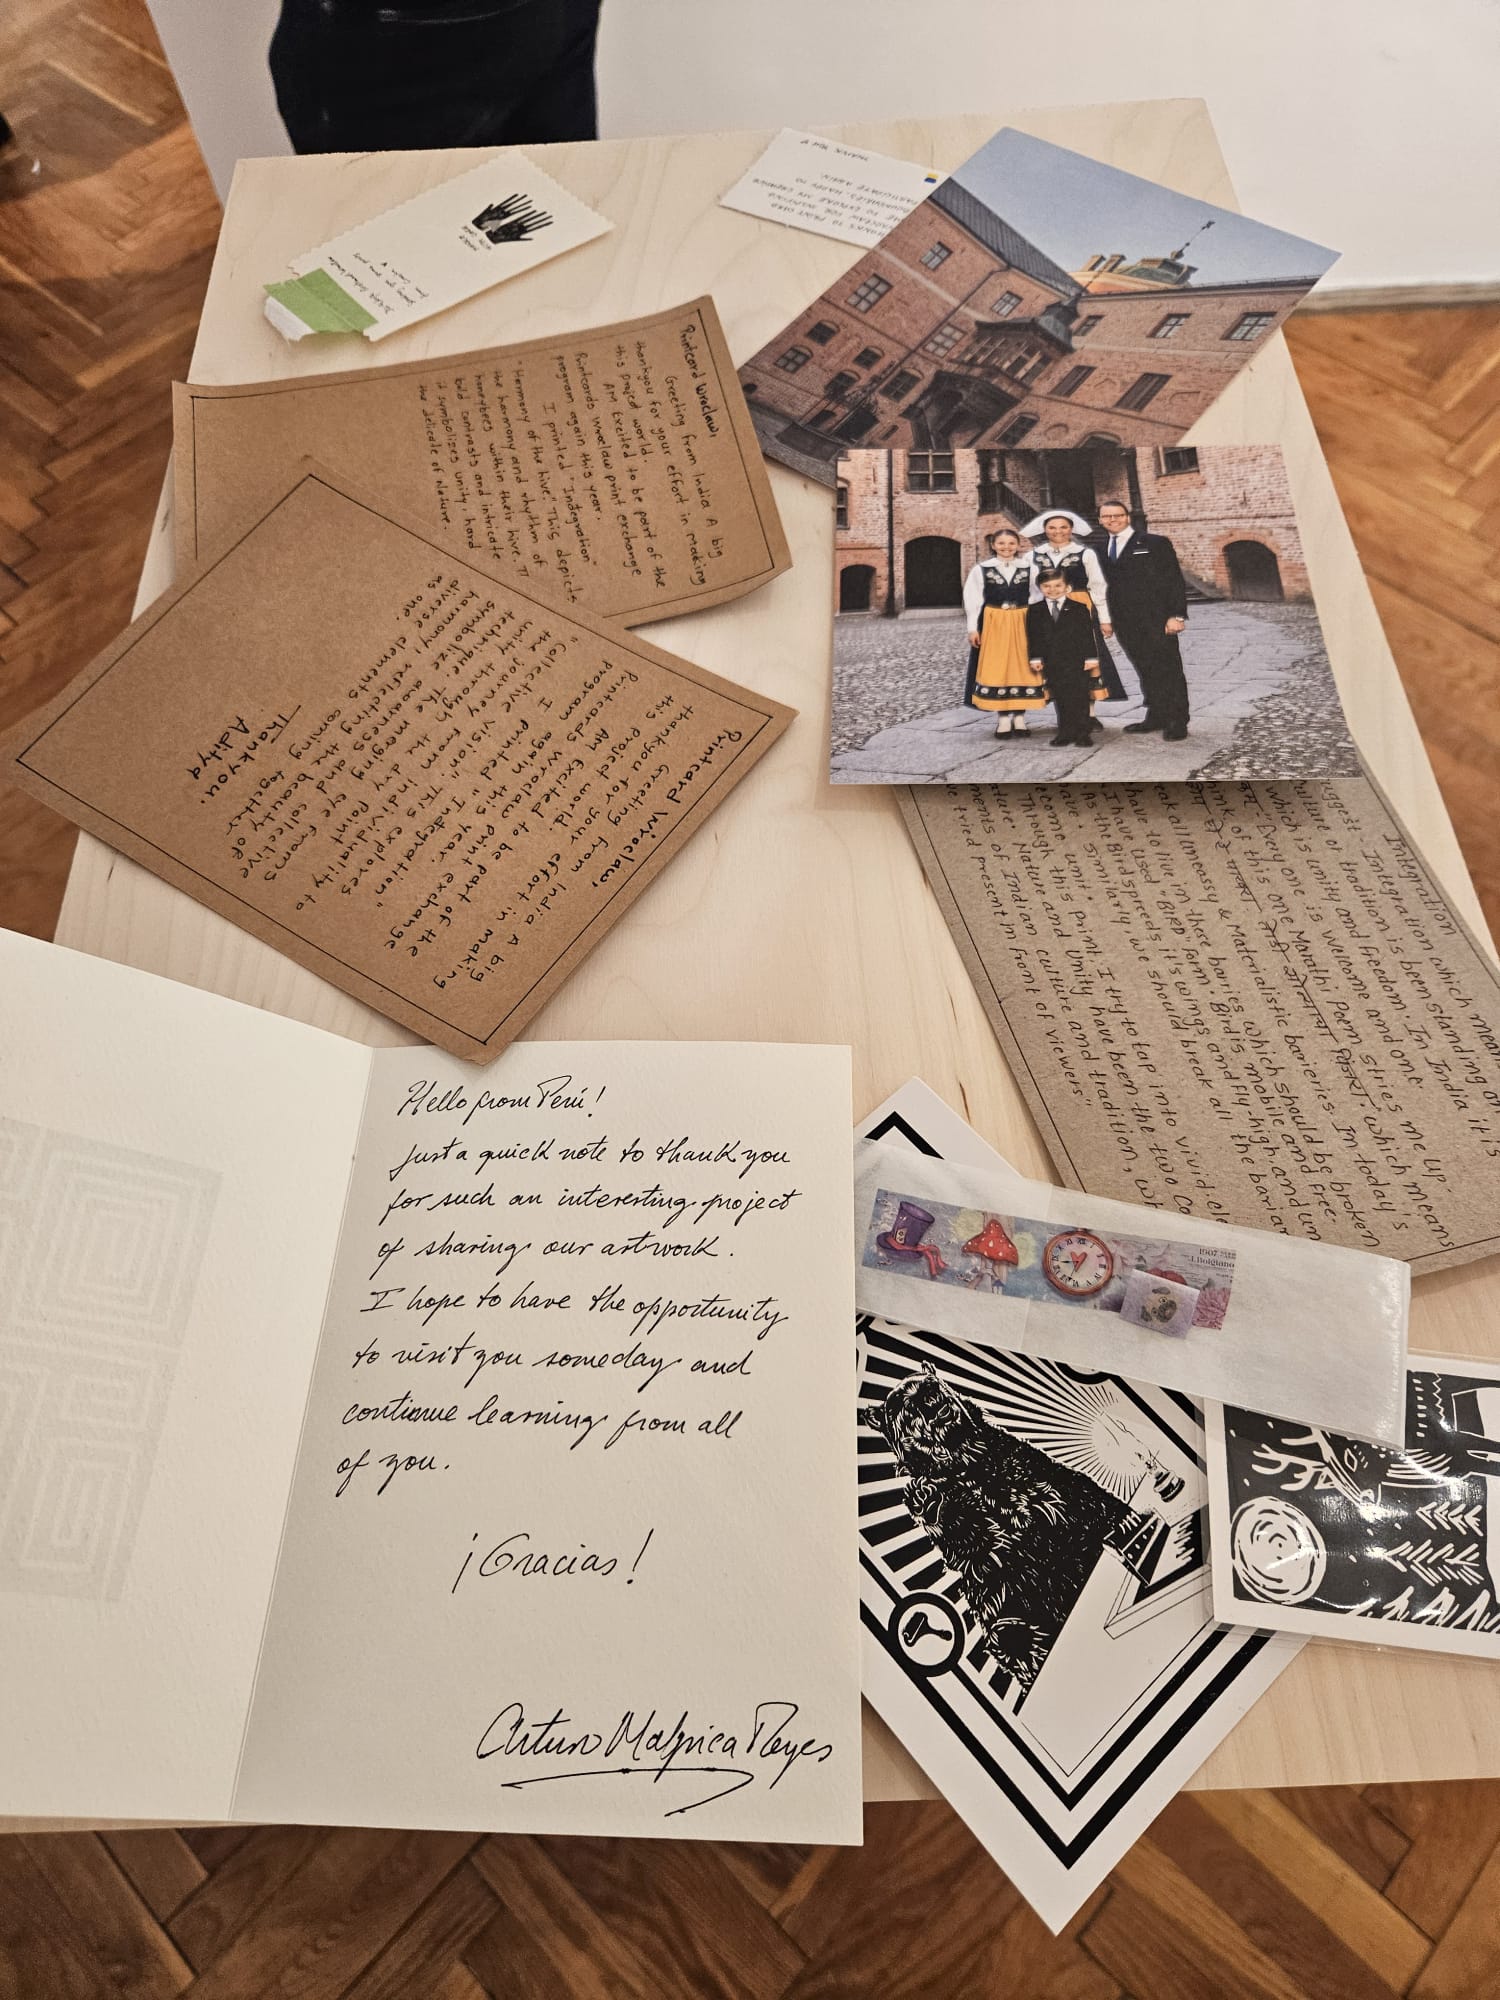 THANK YOU
THANKS TO PRINT CARD
WROCLAW FOR INSPIRING
ME TO EXPLORE MY CREATIVE
BOUNDARIES. HAPPY TO
PARTICIPATE AGAIN.
Printcard Wroclaw,
Greeting from India A big
thankyou for your effort in making
this project world.
AM Excited to be part of the
Printcards Wroclaw print exchange
program again this year.
I printed "Indegration"
"Harmony of the hive." This depicts
the harmony and rhythm of
honeybees within their hive. TI
bild contrasts and intricate
it symbolizes unity, hard
the delicate of Nature.
Printcard Wroclaw,
Greeting from India A big
thankyou for your effort in making
this project world.
AM Excited to be part of the
Printcards Wroclaw print exchange
program again this year.
I printed "Indegration"
"Collective vision". This explores
the journey from individuality to
unity through the dry point
technique. The merging eye forms
symbolize awarness and collective
harmony, reflecting the beauty of
diverse elements coming together
as one.
Thankyou.
Aditya
Integration
Integration which mean
suggest - Integration is been standing on
culture of tradition. In India it is
which is unity and freedom.
"Every one is welcome and one"
think of this one Marathi Poem stries me up.
which means
In today's
break all uneassy & Materialistic barieries
have to live in these baries which should be broken
I have used "BIRD" form. Bird is mobile and free.
As the Bird spreeds it's wings and fly-high and un
have. Similarly, we should break all the bariar
become unit.
Through this print, I try to tap into vivid ele
nature. Nature and Unity have been the two co
ments of Indian culture and tradition, wh
ve tried present in front of viewers"
Hello from Perú!
Just a quick note to thank you
for such an interesting project
of sharing our artwork.
I hope to have the opportunity
to visit you someday and
continue learning from all
of you.
¡Gracias!
Arturo Malpica Reyes
1907
J. Bolgiano